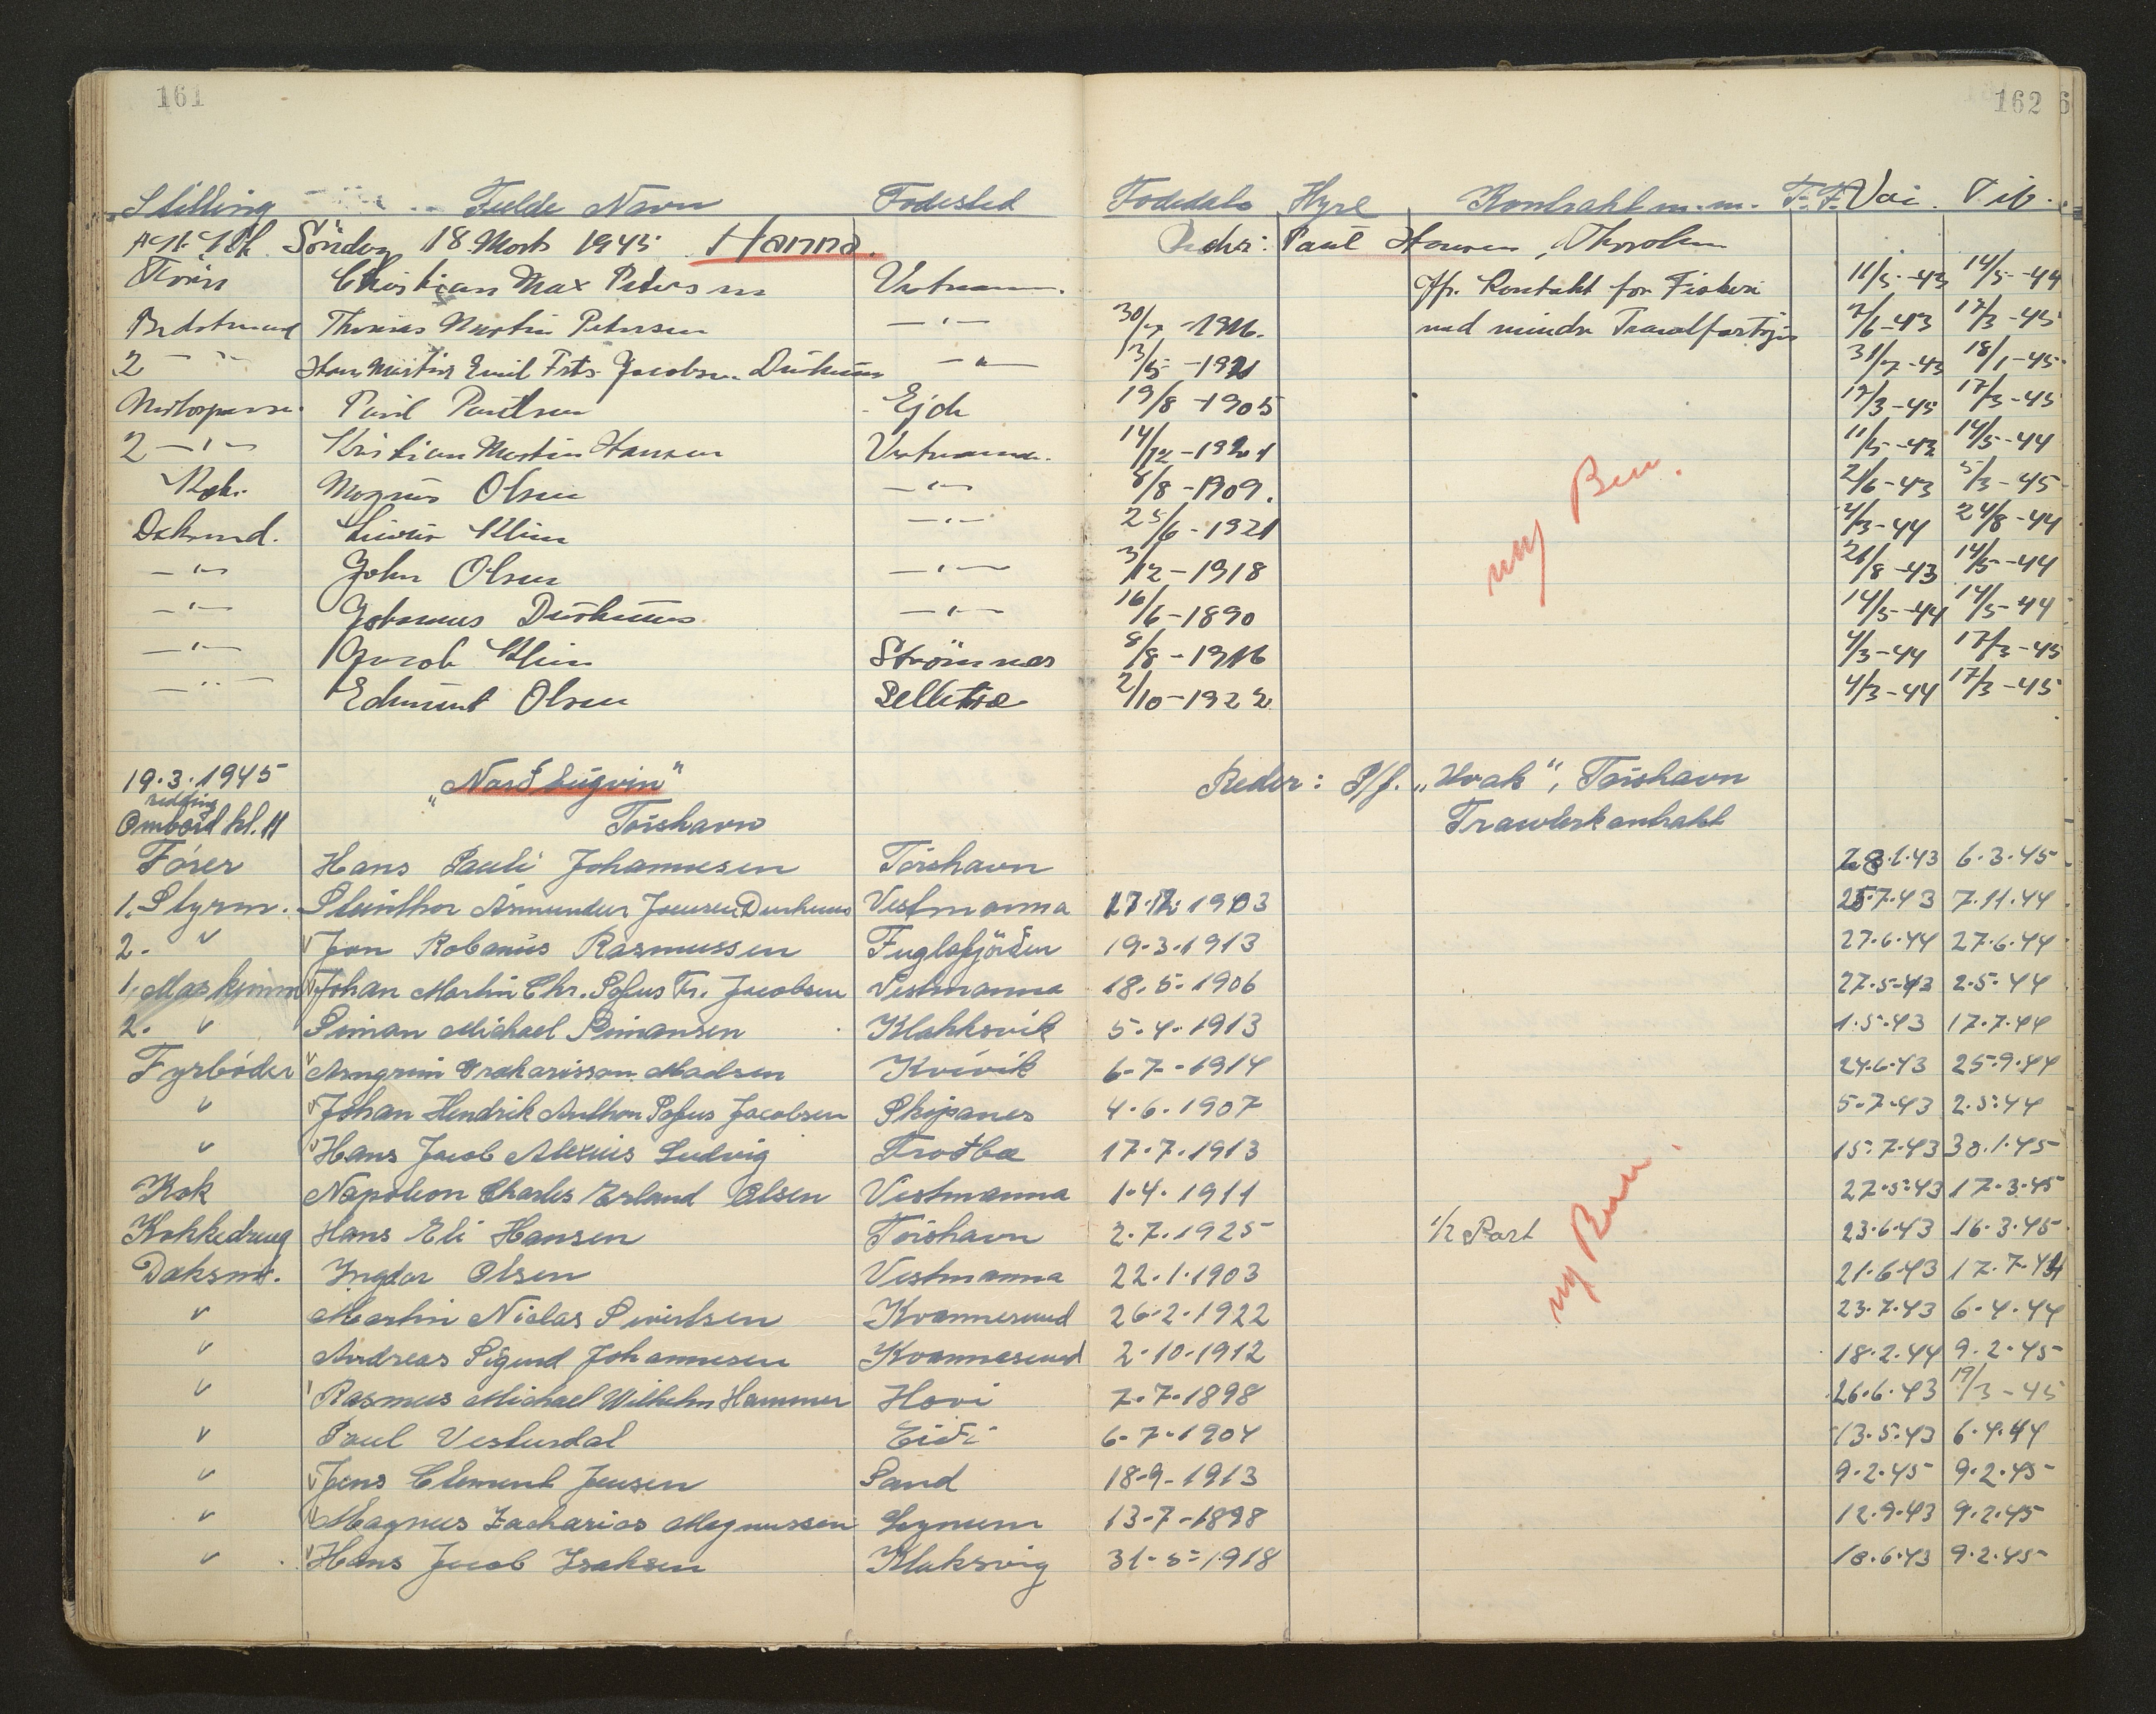 161 162
Stilling Fulde Navn Fødested Fødedato Hyre Kontrakt m.m. T.F. Vai. Vib.
Söndag 18 Marts 1945 Hanna. Reder: Paul Hansen, Thorshavn
Förer Christian Max Petersen Vestmann. Kontrakt for Fiskeri 11/5-43 14/5-44
Bedstmand Thomas Martin Petersen —"— 30/7-1916. med mindre Trawlfartöjer 7/6-43 17/3-45
2 —"— Hans Martin Emil Frts. Jacobsen Durhuus —"— 13/5-1921 31/7-43 18/1-45
Motorpasser. Paul Poulsen Ejde 19/8-1905 17/3-45 17/3-45
2 —"— Kristian Martin Hansen Vestmanna. 14/12-1921 11/5-43 14/5-44
Kok. Magnus Olsen —"— 8/8-1909. 2/6-43 5/3-45
ny Bem.
Dæksmd. Klein —"— 25/6-1921 4/3-44 24/8-44
—"— John Olsen —"— 3/12-1918 21/8-43 14/5-44
—"— Johannus Durhuus —"— 16/6-1890 14/5-44 14/5-44
—"— Jacob Klein Strömnes 8/8-1916 4/3-44 17/3-45
—"— Edmunt Olsen Selletræ 2/10-1922 4/3-44 17/3-45
19.3.1945 "Nord Lúgvin" Reder: P/f. "Hvak", Tórshavn
redding
Ombord kl. 11 Tórshavn Trawlerkontrakt
Fører Hans Pauli Johannesen Tórshavn 28.1.43 6.3.45
1. Styrm. Steinthor Ásmundur Joensen Durhuus Vestmanna 17.12.1903 25.7.43 7.11.44
2. " Jon Robanus Rasmussen Fuglafjörður 19.3.1913 27.6.44 27.6.44
1. Maskinm Johan Martin Chr. Sofus Fr. Jacobsen Vestmanna 18.5.1906 27.5.43 2.5.44
2. " Simon Michael Simonsen Klakksvik 5.4.1913 1.5.43 17.7.44
Fyrbøder Arngrim Madsen Kvívík 6-7-1914 24.6.43 25.9.44
" Johan Hendrik Anthon Sofus Jacobsen Skipanes 4.6.1907 5.7.43 2.5.44
" Hans Jacob Alexius Ludvig Froðba 17.7.1913 15.7.43 30.1.45
Kok Napoleon Charles Erland Olsen Vestmanna 1.4.1911 27.5.43 17.3.45
Kokkedreng Hans Eli Hansen Tórshavn 2.7.1925 1/2 Part 23.6.43 16.3.45
ny Bem.
Dæksm. Ingvar Olsen Vestmanna 22.1.1903 21.6.43 17.7.44
" Martin Niclas Sivertsen Kvannesund 26.2.1922 23.7.43 6.4.44
" Andreas Sigurd Johannesen Kvannesund 2.10.1912 18.2.44 9.2.45
" Rasmus Michael Wilhelm Hammer Hovi 7.7.1898 26.6.43 19/3-45
" Paul Vesturdal Eiði 6-7-1904 13.5.43 6.4.44
" Jens Clement Jensen Sand 18-9-1913 9.2.45 9.2.45
" Magnus Zacharias Magnussen Lynum 13-7-1898 12.9.43 9.2.45
" Hans Jacob Isaksen Klaksvig 31-5-1918 10.6.43 9.2.45